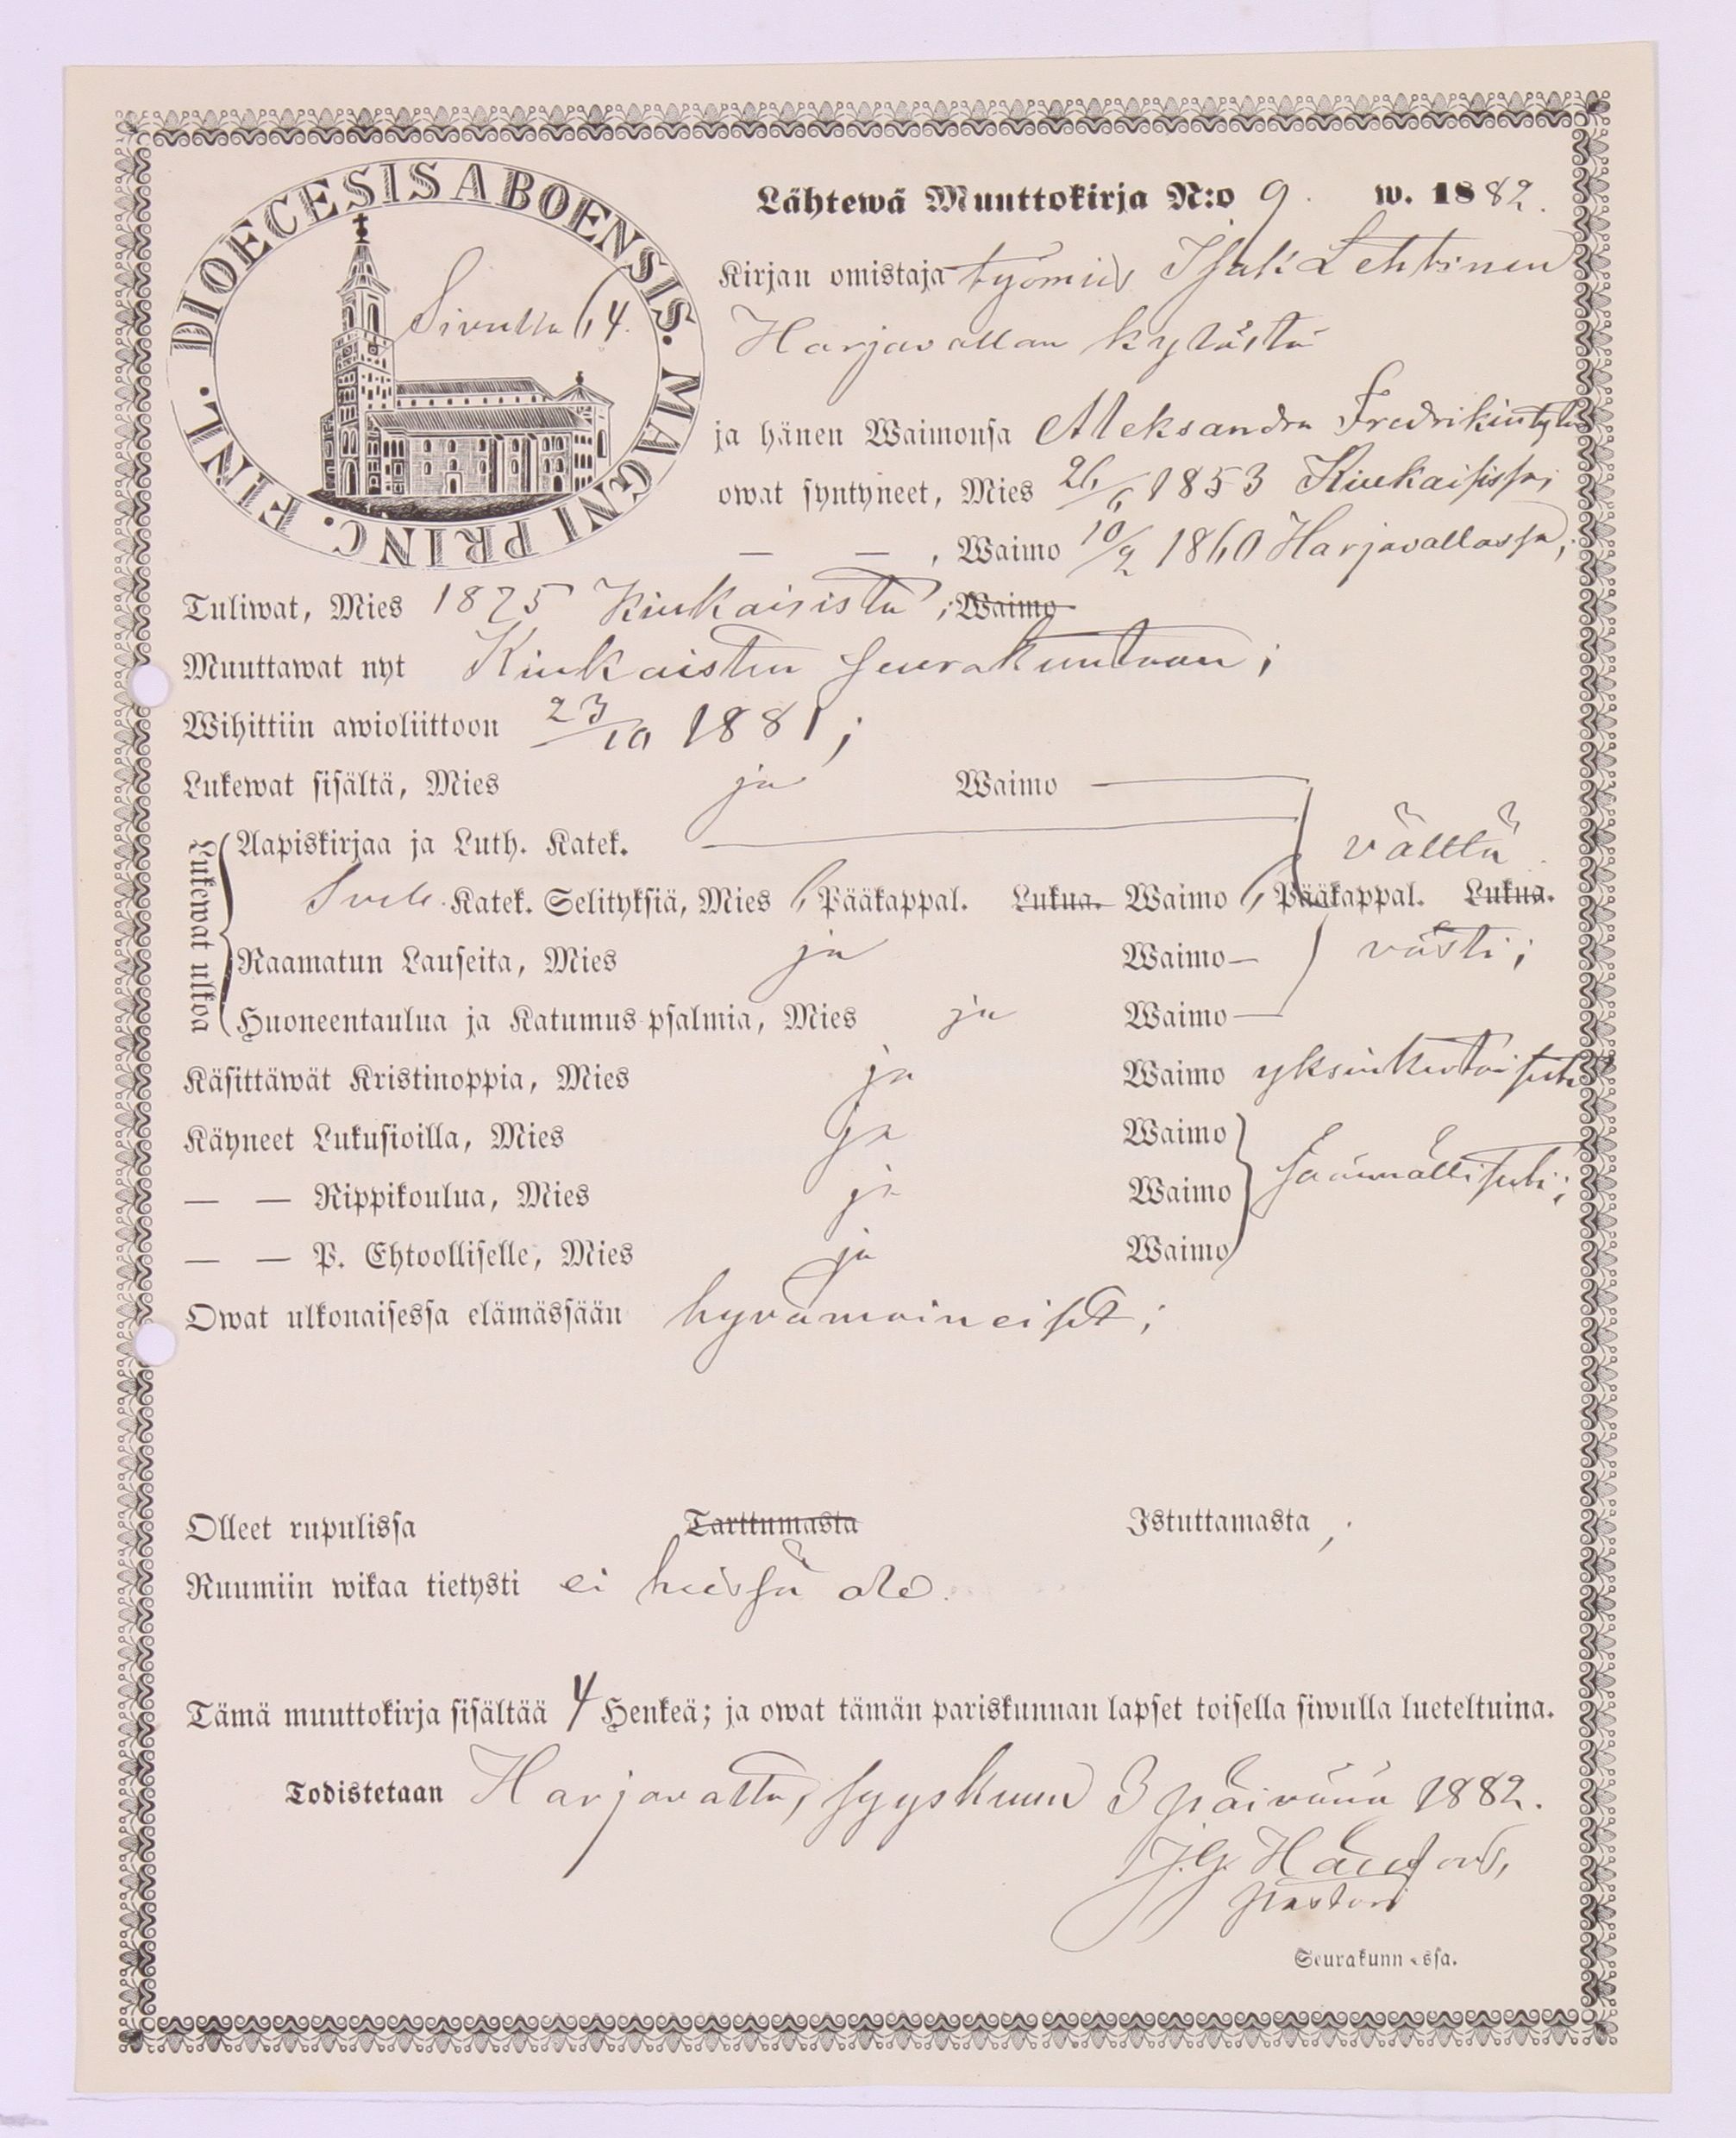 DIOECESIS ABOENSIS. MAGNI PRINC. FINL.
Sivulla 64.
Lähtewä Muuttokirja N:o 9. w. 1882.
Kirjan omistaja työmies Isak Lehtinen
Harjavallan kylästä
ja hänen Waimonsa Aleksandra Fredrikintytär
owat syntyneet, Mies 26/6 1853 Kiukaisissa;
— — , Waimo 10/2 1860 Harjavallassa;
Tuliwat, Mies 1875 Kiukaisista; Waimo
Muuttawat nyt Kiukaisten seurakuntaan;
Wihittiin awioliittoon 23/10 1881;
Lukewat sisältä, Mies ja Waimo
Lukewat ulkoa
Aapiskirjaa ja Luth. Katek. välttä
Sveb. Katek. Selityksiä, Mies 6 Pääkappal. Lukua. Waimo 6 Pääkappal. Lukua.
Raamatun Lauseita, Mies ja Waimo — västi;
Huoneentaulua ja Katumus-psalmia, Mies ja Waimo —
Käsittäwät Kristinoppia, Mies ja Waimo yksinkertaisesti
Käyneet Lukusioilla, Mies ja Waimo
— — Rippikoulua, Mies ja Waimo säännällisesti;
— — P. Ehtoolliselle, Mies ja Waimo
Owat ulkonaisessa elämässään hyvämaineiset;
Olleet rupulissa Tarttumasta Istuttamasta;
Ruumiin wikaa tietysti ei heissä ole.
Tämä muuttokirja sisältää 4 Henkeä; ja owat tämän pariskunnan lapset toisella siwulla lueteltuina.
Todistetaan Harjavalta, syyskuun 3 päivänä 1882.
J. G.
pastori
Seurakunn essa.